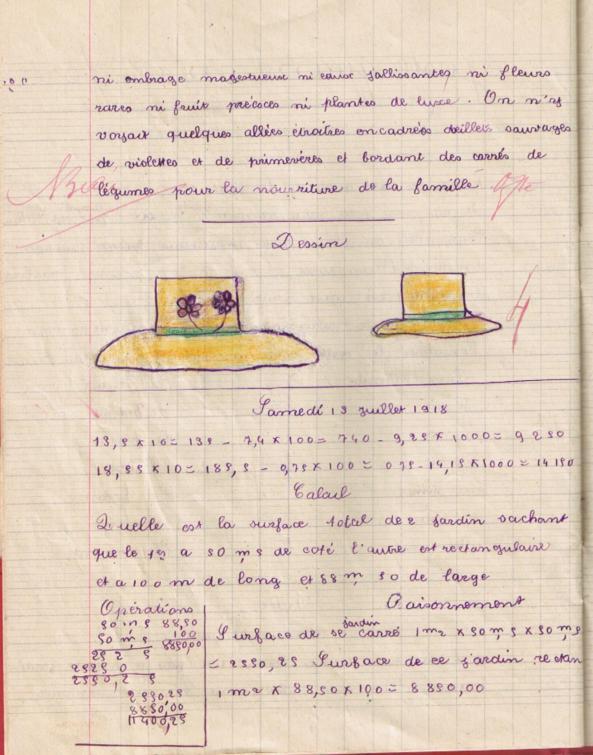 ni ombrage magestueux ni eaux jallissantes ni fleurs
rares ni fruit précoces ni plantes de luxe. On n'y
voyait quelques allées étroites encadrées d'eillets sauvages
de violettes et de primevères et bordant des carrés de
légumes pour la nourriture de la famille
Dessin
4
Samedi 13 juillet 1918
13,5 x 10 = 135 - 7,4 x 100 = 740 - 9,25 x 1000 = 9250
18,55 x 10 = 185,5 - 0,75 x 100 = 075 - 14,15 x 1000 = 14150
Calcul
Quelle est la surface total de 2 jardin sachant
que le 1er a 50 m 5 de coté l'autre est rectangulaire
et a 100 m de long et 88 m 50 de large
Opérations Raisonnement
50 m 5 88,50
50 m, 5 100
252 5 8850,00
2525 0
2550,2 5
2550,25
8850,00
11400,25
Surface de se jardin carré 1 m2 x 50 m, 5 x 50 m, 5
= 2550,25 Surface de ce jardin rectan
1 m2 x 88,50 x 100 = 8850,00